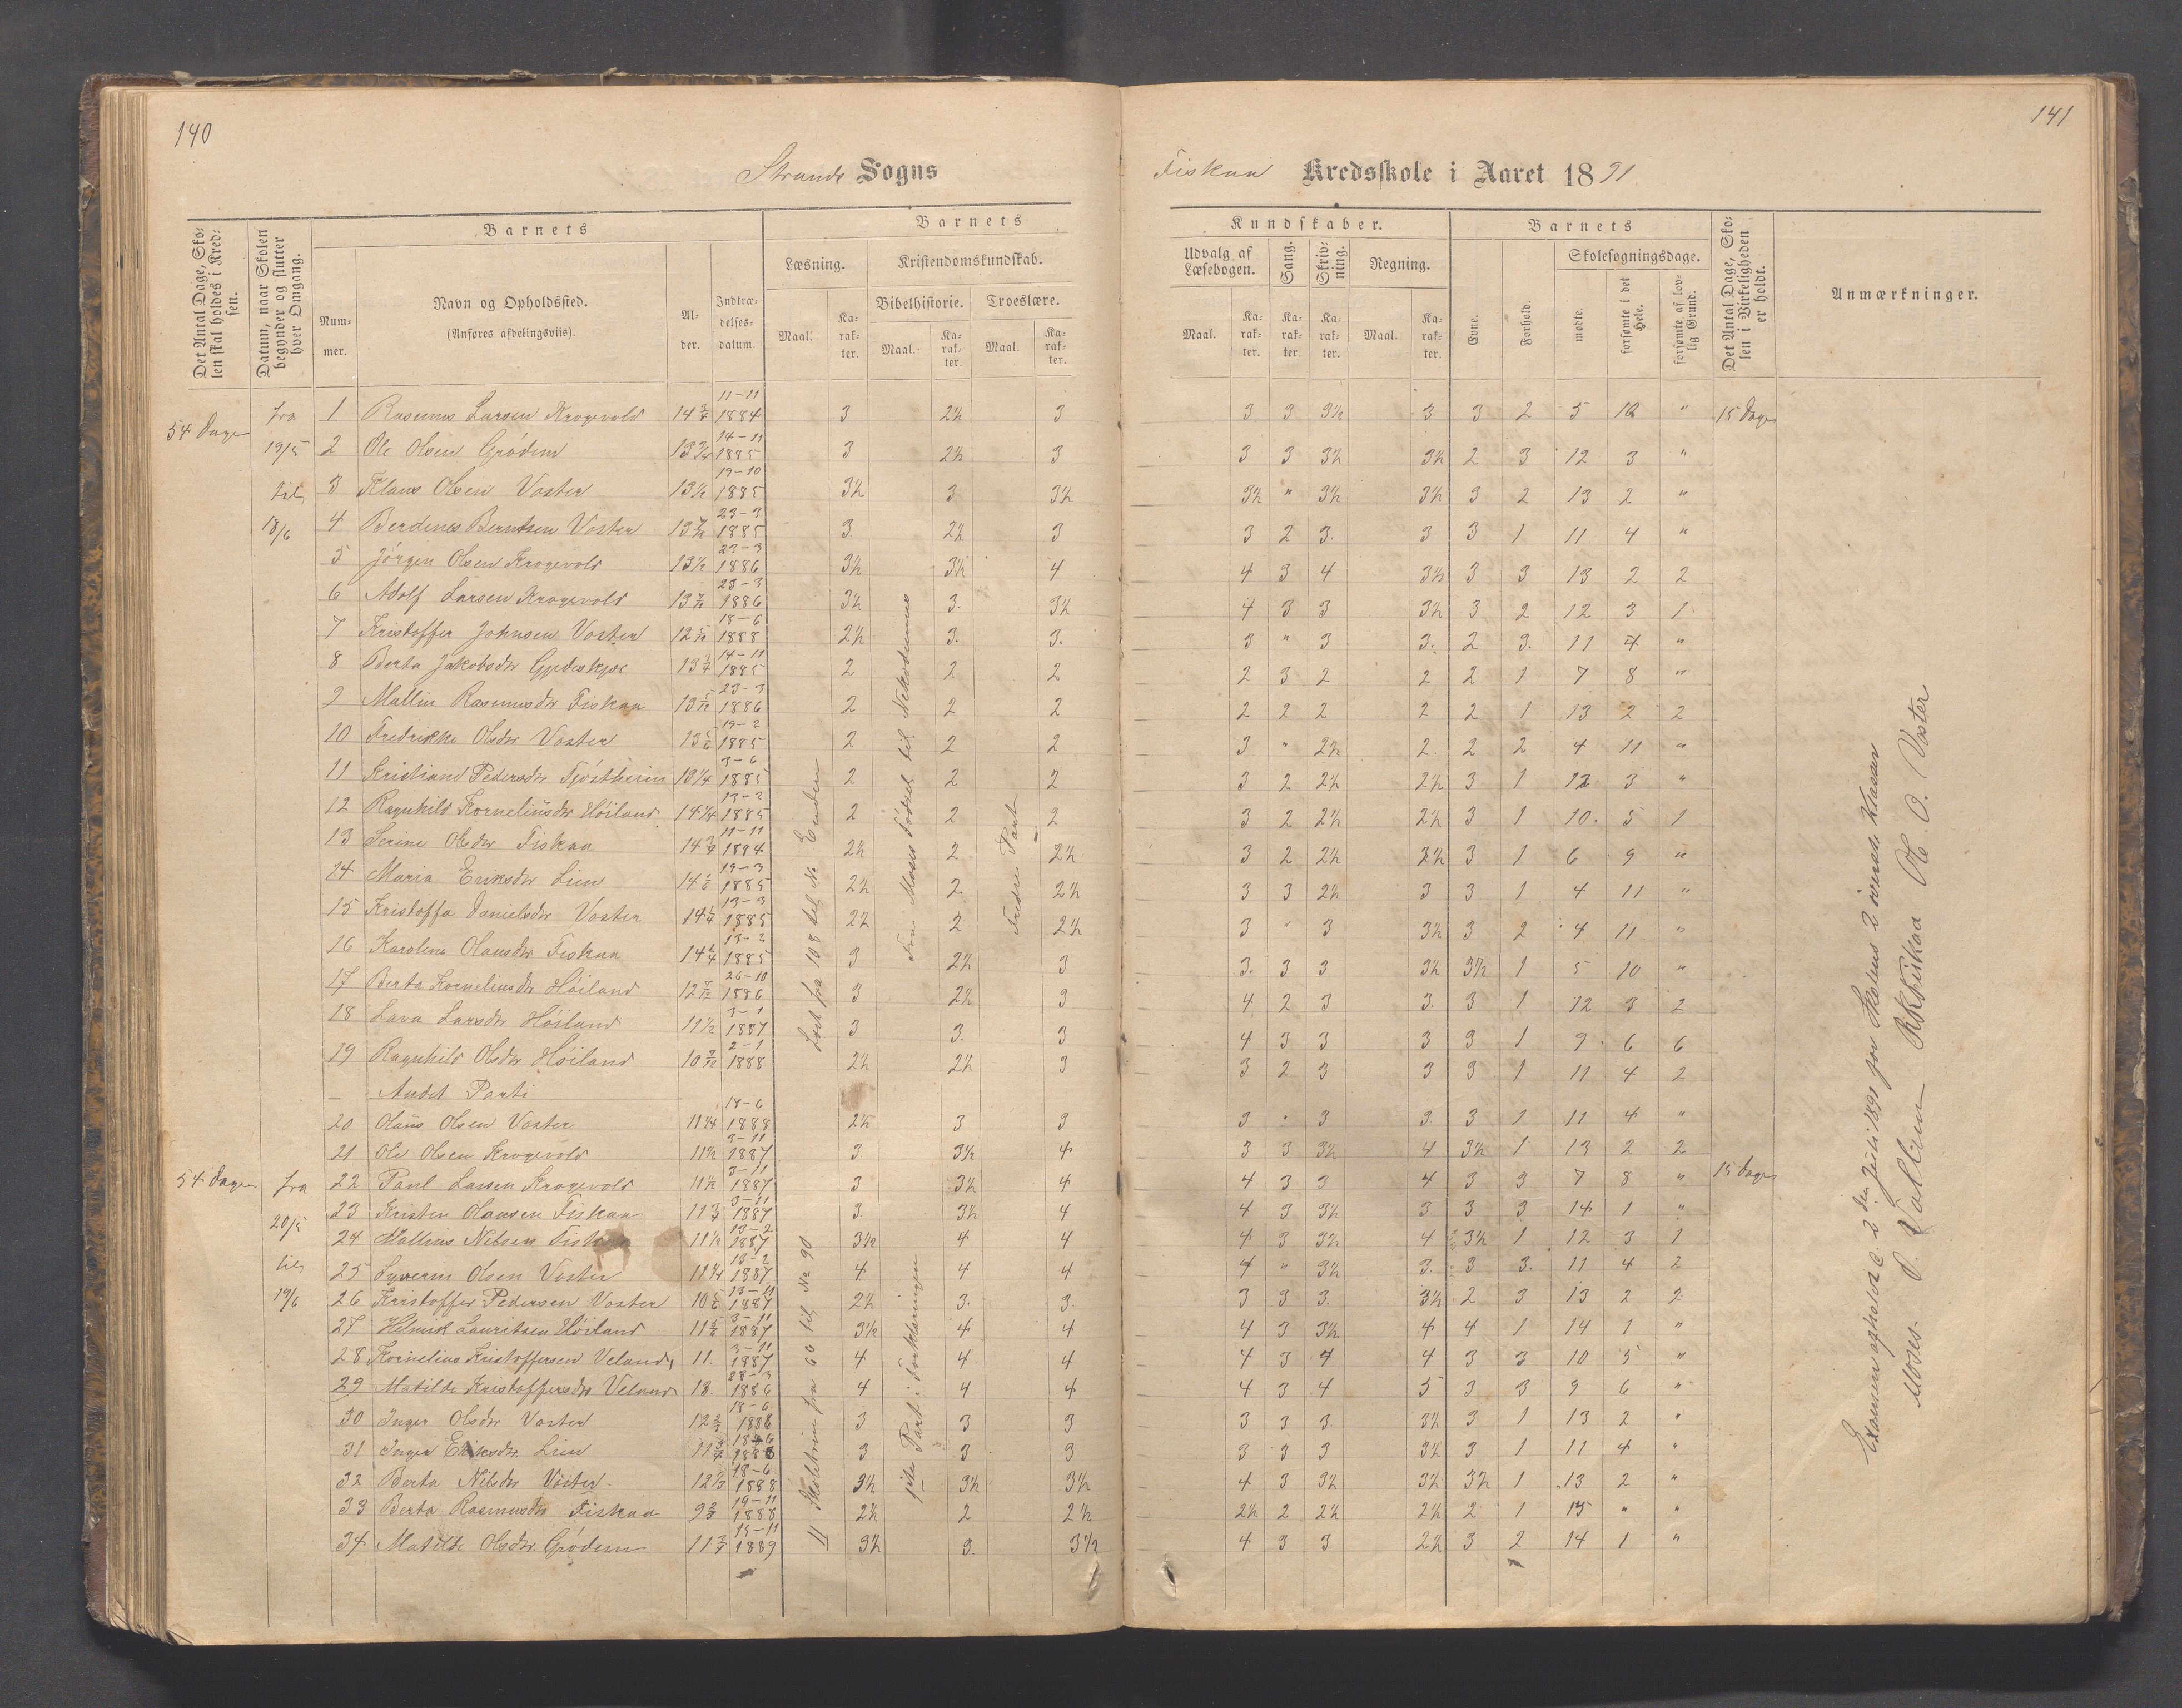 140
141
Strands Sogns
Fiskaa Kredsskole i Aaret 1891
Det Antal Dage, Skolen skal holdes i Kredsen.
Datum, naar Skolen begynder og slutter hver Omgang.
Barnets
Nummer.
Navn og Opholdssted.
(Anføres afdelingsviis).
Alder.
Indtrædelsesdatum.
Barnets
Læsning.
Kristendomskundskab.
Bibelhistorie.
Troeslære.
Maal.
Karakter.
Maal.
Karakter.
Maal.
Karakter.
Kundskaber.
Udvalg af Læsebogen.
Sang.
Skrivning.
Regning.
Maal.
Karakter.
Karakter.
Karakter.
Maal.
Karakter.
Barnets
Evne.
Forhold.
Skolesøgningsdage.
mødte.
forsømte i det Hele.
forsømte af lovlig Grund.
Det Antal Dage, Skolen i Virkeligheden er holdt.
Anmærkninger.
54 Dage fra 19/5 til 18/6
1 Rasmus Larsen Krogevold 14 3/4 11-11 1884 3 2½ 3 3 3 3½ 3 3 2 5 10 " 15 Dage
2 Ole Olsen Grödem 13 3/4 14-11 1885 3 2½ 3 3 3 3½ 3½ 2 3 12 3 "
3 Klaus Olsen Voster 13½ 19-10 1885 3½ 3 3½ 3½ " 3½ 3½ 3 2 13 2 "
4 Berdines Berntsen Voster 13 7/12 23-3 1885 3 2½ 3 3 2 3. 3 3 1 11 4 "
5 Jörgen Olsen Krogevold 13½ 23-3 1886 3½ 3½ 4 4 3 4 3½ 3 3 13 2 2
6 Adolf Larsen Krogevold 13 7/12 23-3 1886 3½ 3. 3½ 4 3 3 3½ 3 2 12 3 1
7 Kristoffer Johnsen Voster 12 5/12 18-6 1888 2½ 3. 3. 3 " 3 3. 2 3. 11 4 "
8 Berta Jakobsdr Gjedeskjæ 13 3/4 14-11 1885 2 2 2 2 3 2 2 2 1 7 8 "
9 Mallin Rasmusdr Fiskaa 13 5/12 23-3 1886 2 2 2 2 2 2 2 2 1 13 2 2
10 Fredrikke Olsdr Voster 13 5/6 19-2 1885 2 2 2 3 " 2½ 2. 2 2 4 11 "
11 Kristiane Pedersdr Tjöstheim 13 1/4 3-6 1885 2 2 2 3 2 2½ 2½ 3 1 12 3 "
12 Ragnhild Korneliusdr Höiland 14 1/4 13-2 1885 2 2 2 3 2 2½ 2½ 3 1 10. 5 1
13 Serine Olsdr Fiskaa 14 3/4 11-11 1884 2½ 2 2½ 3 2 2½ 2½ 3 1 6 9 "
14 Maria Eriksdr Lien 14 1/6 19-3 1885 2½ 2 2½ 3 3 2½ 3 3 1 4 11 "
15 Kristoffa Danielsdr Voster 14 1/4 13-3 1885 2½ 2 2½ 3 " 3 3½ 3 2 4 11 "
16 Karoline Hansdr Fiskaa 14 1/4 13-2 1885 3 2½ 3 3. 3 3 3½ 3½ 1 5 10 "
17 Berta Korneliusdr Höiland 12 7/12 26-10 1886 3 2½ 3 4 2 3 3. 3 1 12 3 2
18 Lava Larsdr Höiland 11½ 3-1 1887 3 3. 3 4 3 3 3 3 1 9 6 6
19 Ragnhild Olsdr Höiland 10 7/12 2-1 1888 2½ 2½ 3 3 2 3 3 3 1 11 4 2
Læst fra 108 til No Enden
Fra Moses Fødsel til Nikodemus
Tredie Part
- Andet Parti
20 Hans Olsen Voster 11 1/4 18-6 1888 2½ 3 3 3 " 3 3 3 1 11 4 "
21 Ole Olsen Krogevold 11½ 3-11 1887 3 3½ 4 3 3 3½ 4 3½ 1 13 2 2
54 Dage fra 20/5 til 19/6
22 Paul Larsen Krogevold 11½ 3-11 1887 3 3½ 4 4 3 3 4 3 3 7 8 " 15 Dage
23 Kristen Hansen Fiskaa 11 3/4 3-11 1887 3. 3½ 4 4 3 3½ 3 3 3 14 1 "
24 Mallius Nilsen Fiskaa 11½ 13-2 1887 3½ 4 4 4 3 3½ 4 3½ 1 12 3 1
25 Syverin Olsen Voster 11 1/4 13-2 1887 4 4 4 4 " 3½ 3. 3 3. 11 4 2
26 Kristoffer Pedersen Voster 10 5/6 13-11 1887 2½ 3. 3. 3 3 3 3½ 2 3 13 2 2
27 Helmik Lauritsen Höiland 11 5/6 3-11 1887 3½ 4 4 4 3 3½ 4 4 1 14 1 "
28 Kornelius Kristoffersen Veland, 11. 3-11 1887 4 4 4 4 3 4 4 3 3 10 5 "
29 Matilde Kristoffersdr Veland 13. 28-3 1886 4 4 4 4 3 4 5 3 3 9 6 "
30 Inger Olsdr Voster 12 2/3 18-6 1886 3 3 3 3 3 3. 3½ 3 1 13 2 "
31 Inger Eriksdr Lien 11 3/4 18-6 1886 3 3 3 3 3 3 3½ 3 1 11 4 "
32 Berta Nilsdr Voster 12 1/3 18-6 1888 3½ 3½ 3½ 4 3 3½ 3½ 3½ 1 13 2 "
33 Berta Rasmusdr Fiskaa 9 2/3 19-11 1888 2½ 2 2½ 2½ 2 2½ 2½ 2 1 15 " "
34 Matilde Olsdr Grödem 11 3/4 15-11 1889 3½ 3. 3½ 4 3 3 2½ 3 2 14 1 "
fra 66 til No 90
1ste Part i Forklaringen
Examen afholdt d. 2 den Juli 1891 for Skolens 2 øverste Klasser
P. Vallem Ole O. Voster